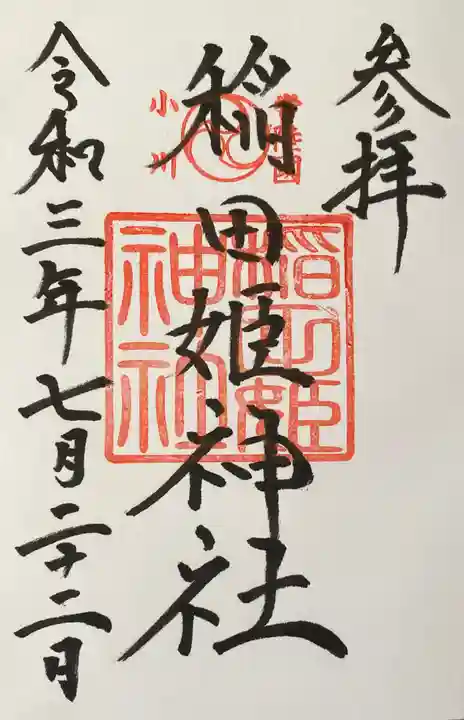 参拝
常陸國
小川
稲田姫神社
稲田姫
神社
令和三年七月二十二日